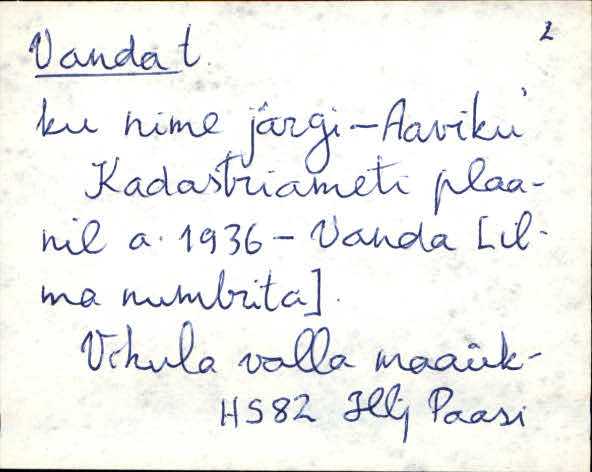 2
Vanda t.
ku nime järgi – Aaviku
Kadastriameti plaa-
nil a. 1936 – Vanda [il-
ma numbrita].
Vihula valla maaük-
HS82 Hlj Paasi